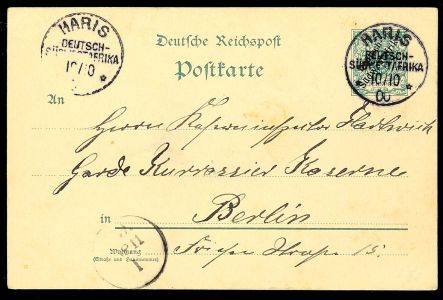 HARIS
DEUTSCH-
SÜDWESTAFRIKA
10/10
Deutsche Reichspost
Postkarte
HARIS
DEUTSCH-
SÜDWESTAFRIKA
10/10
00
An
Herrn
Garde Kürrassier Kaserne
in Berlin
Wohnung
(Straße und Hausnummer)
Straße 15.